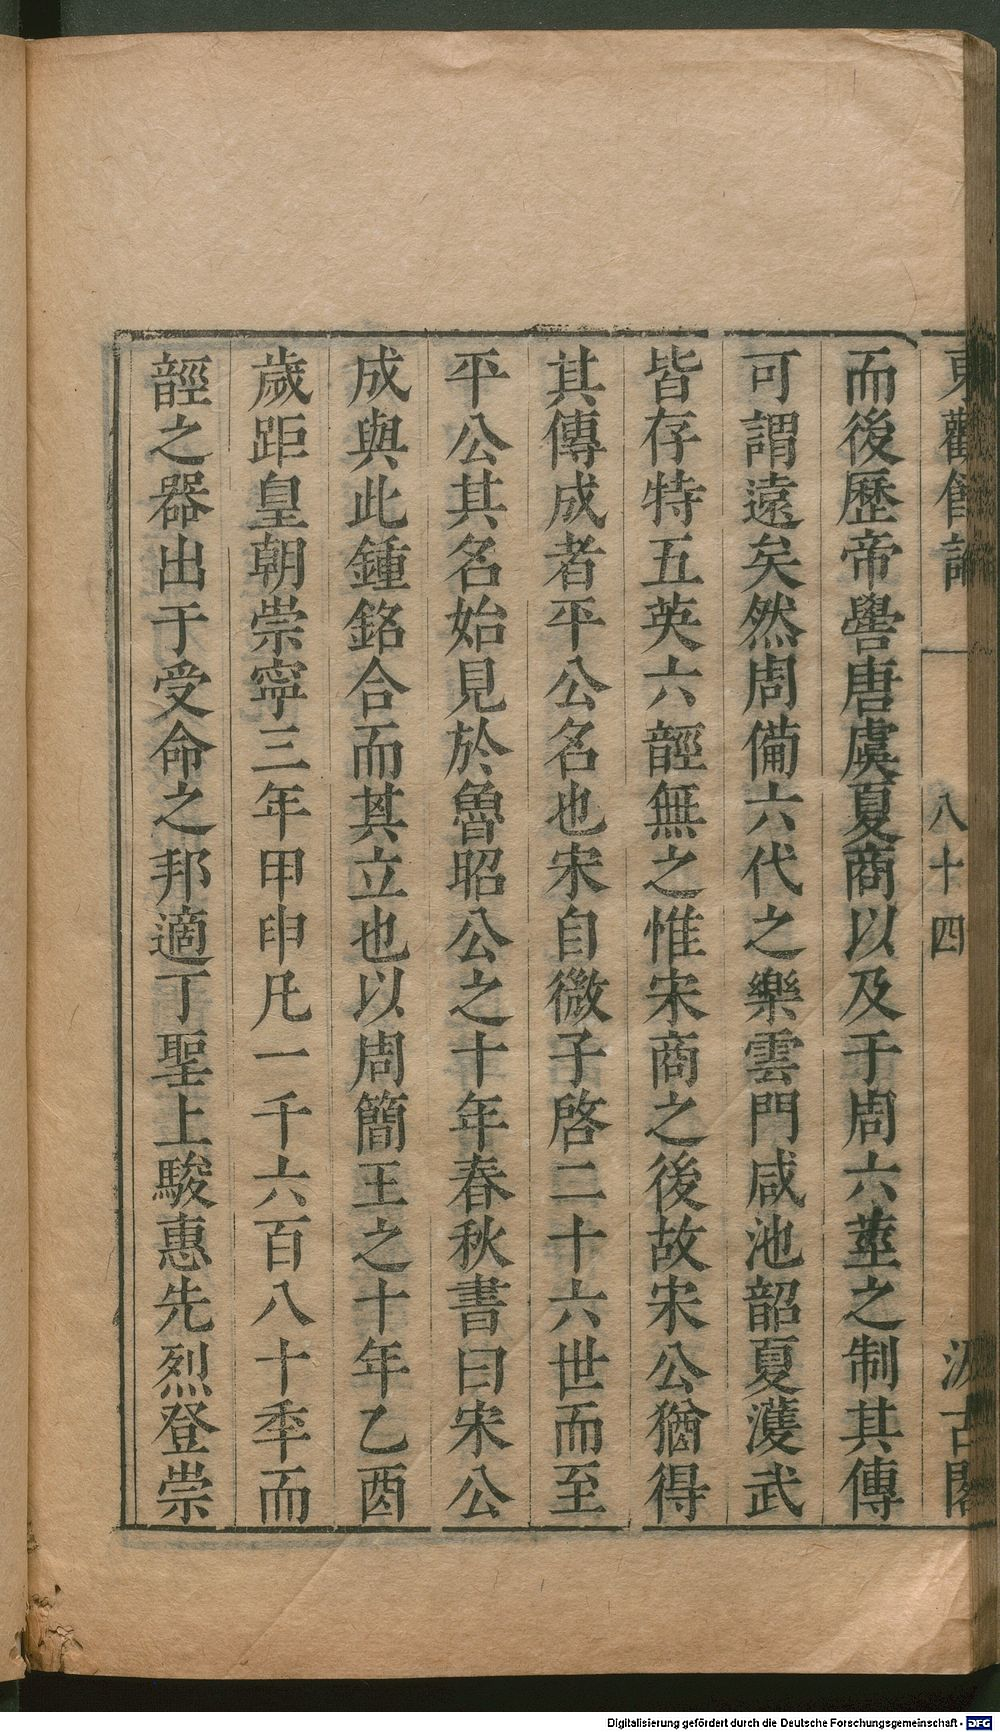 東觀餘論
八十四
汲古閣
而後歷帝嚳唐虞夏商以及于周六莖之制其傳
可謂遠矣然周備六代之樂雲門咸池韶夏濩武
皆存特五英六䪫無之惟宋商之後故宋公猶得
其傳成者平公名也宋自微子啓二十六世而至
平公其名始見於魯昭公之十年春秋書曰宋公
成與此鍾銘合而其立也以周簡王之十年乙酉
歲距皇朝崇寧三年甲申凡一千六百八十秊而
䪫之器出于受命之邦適丁聖上駿惠先烈登崇
Digitalisierung gefördert durch die Deutsche Forschungsgemeinschaft - DFG